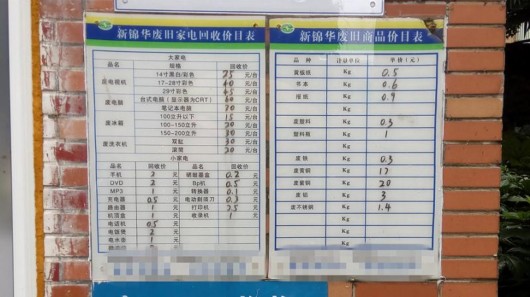 新锦华废旧家电回收价目表
大家电
品名 规格 回收价
废电视机 14寸黑白/彩色 25 元/台
17-28寸彩色 40 元/台
29寸彩色 45 元/台
废电脑 台式电脑(显示器为CRT) 60 元/台
笔记本电脑 70 元/台
废冰箱 100立升以下 15 元/台
100-150立升 20 元/台
150-200立升 30 元/台
废洗衣机 双缸 30 元/台
滚筒 20 元/台
小家电
品名 回收价 品名 回收价
手机 2 元 硬碟基盒 0.2 元
DVD 2 元 Bp机 0.5 元
MP3 1 元 转换器 0.1 元
充电器 0.5 元 电动剃须刀 0.3 元
路由器 1 元 打印机 元
机顶盒 1 元 收录机 1 元
电话机 0.5 元
电饭煲 2 元
电水壶 1 元
元
新锦华废旧商品价目表
品种 计量单位 单价(元)
黄板纸 Kg 0.5
书本 Kg 0.6
报纸 Kg 0.9
Kg
废塑料 Kg 0.5
塑料瓶 Kg 1
Kg
废铁 Kg 0.5
废黄铜 Kg 17
废紫铜 Kg 20
废铝 Kg 3
废不锈钢 Kg 1.4
Kg
Kg
Kg